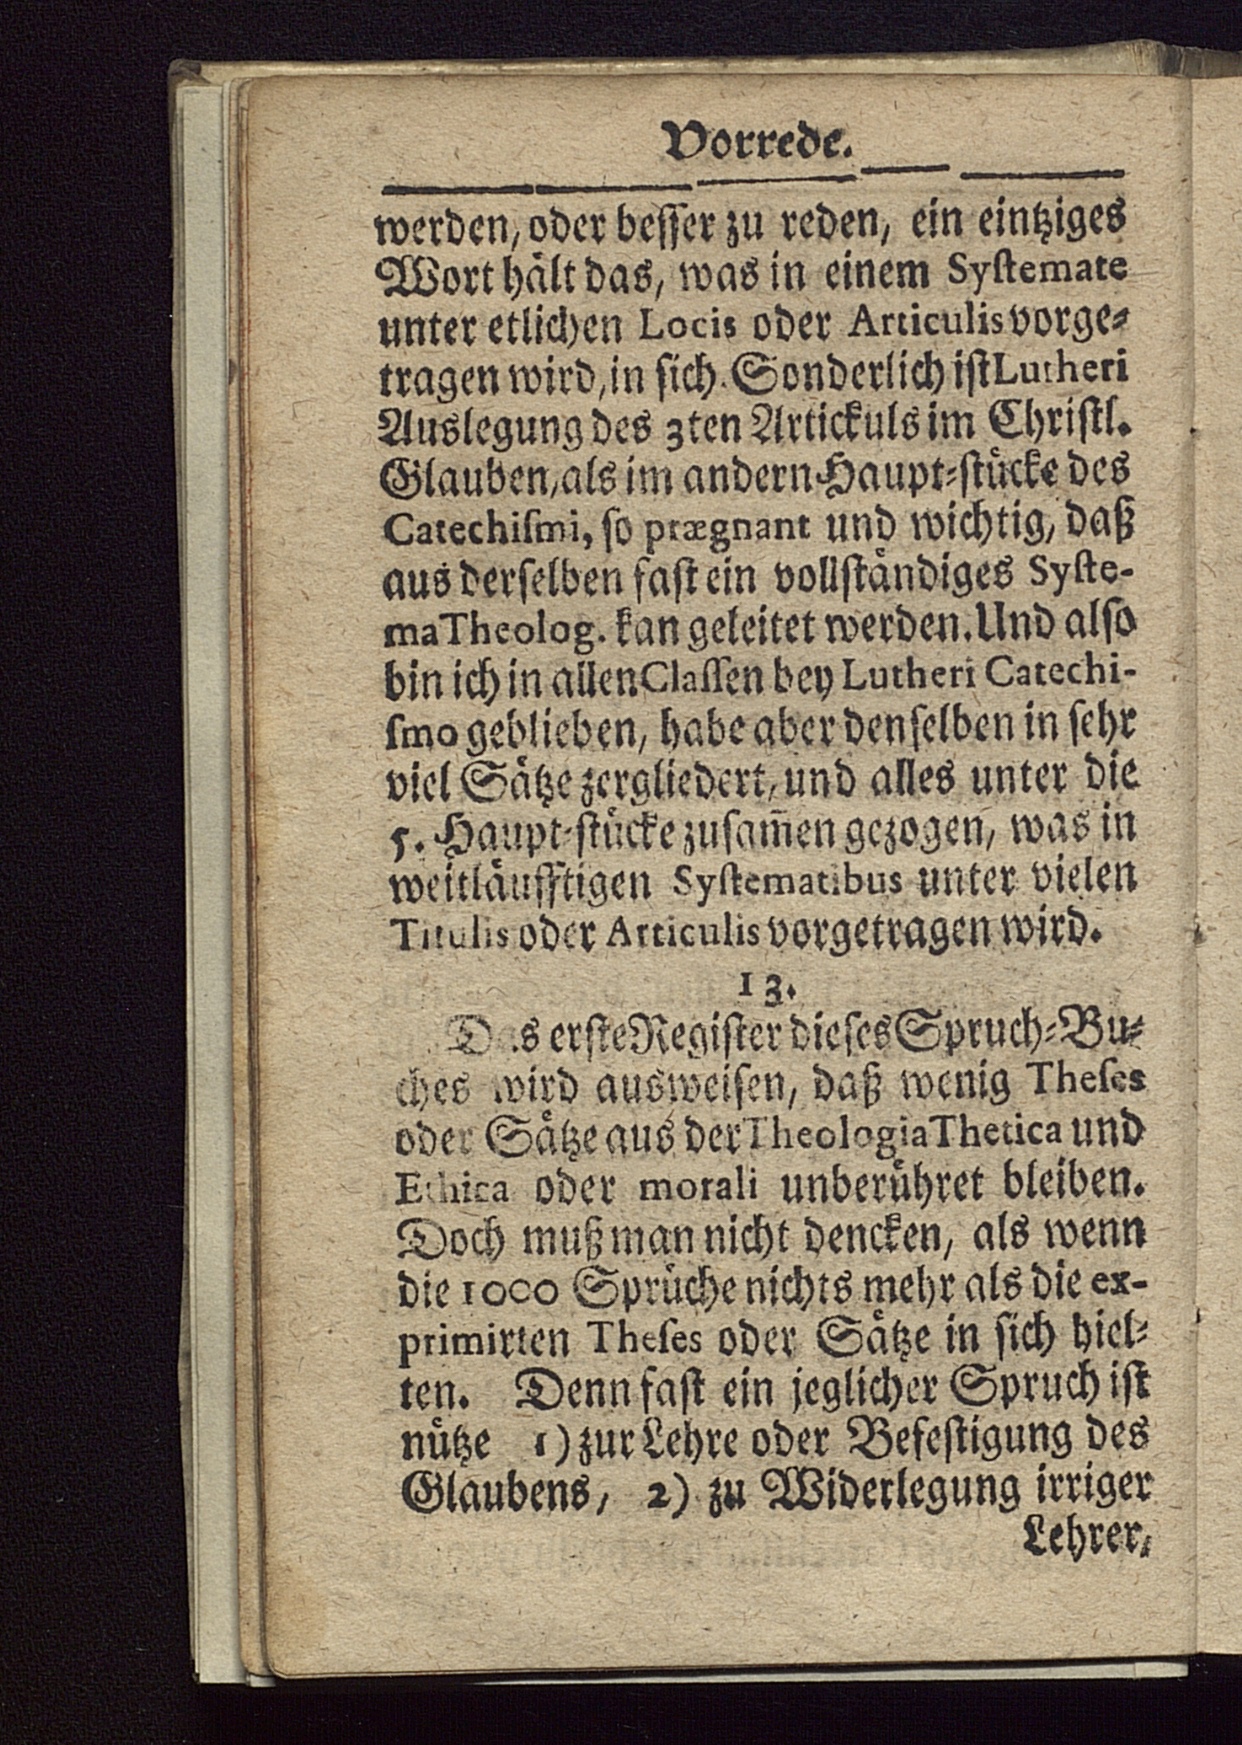 Vorrede.
werden, oder besser zu reden, ein eintziges
Wort hält das, was in einem Systemate
unter etlichen Locis oder Articulis vorge-
tragen wird, in sich. Sonderlich ist Lutheri
Auslegung des 3ten Artickuls im Christl.
Glauben, als im andern Haupt-stücke des
Catechismi, so prægnant und wichtig, daß
aus derselben fast ein vollständiges Syste-
ma Theolog. kan geleitet werden. Und also
bin ich in allen Classen bey Lutheri Catechi-
smo geblieben, habe aber denselben in sehr
viel Sätze zergliedert, und alles unter die
5. Haupt-stücke zusam̄en gezogen, was in
weitläufftigen Systematibus unter vielen
Titulis oder Articulis vorgetragen wird.
13.
Das erste Register dieses Spruch-Bu-
ches wird ausweisen, daß wenig Theses
oder Sätze aus der Theologia Thetica und
Ethica oder morali unberühret bleiben.
Doch muß man nicht dencken, als wenn
die 1000 Sprüche nichts mehr als die ex-
primirten Theses oder Sätze in sich hiel-
ten. Denn fast ein jeglicher Spruch ist
nütze 1) zur Lehre oder Befestigung des
Glaubens, 2) zu Widerlegung irriger
Lehrer,